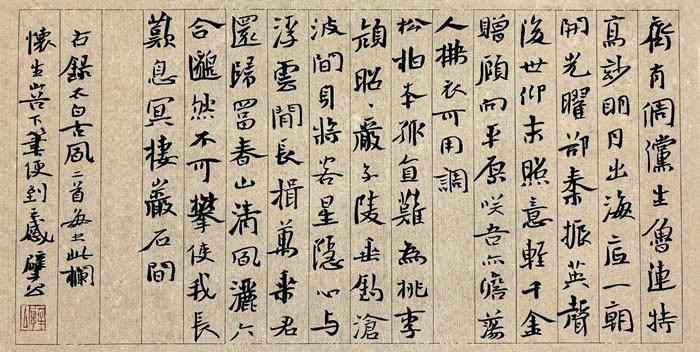 齊有倜儻生魯連特
高妙明月出海底一朝
開光曜卻秦振英聲
後世仰末照意輕千金
贈顧向平原咲吾亦澹蕩
人拂衣可同調
松柏本孤直難為桃李
顏昭、嚴子陵垂釣滄
波間身將客星隱心與
浮雲閒長揖萬乘君
還歸富春山清風灑六
合邈然不可攀使我長
歎息冥棲巖石間
右錄太白古風二首每書此欄
懷生下筆便到感